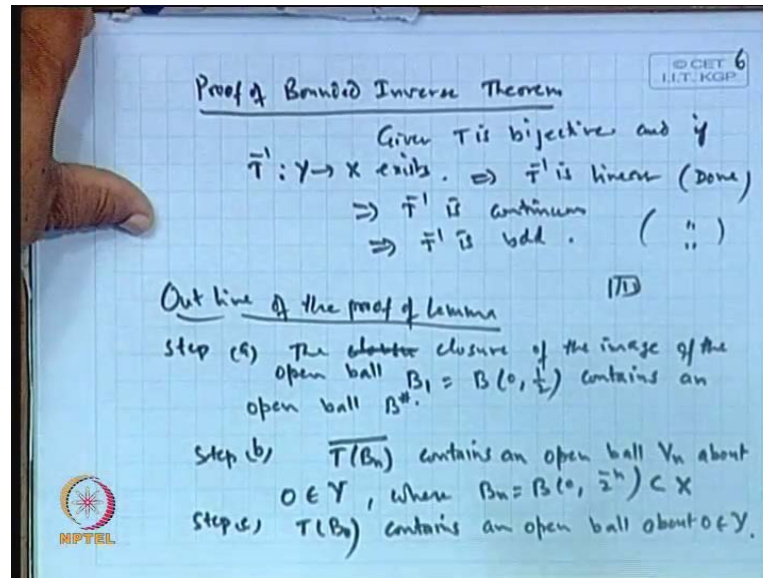 © CET
I.I.T. KGP
6
Proof of Bounded Inverse Theorem
Given T is bijective and if
T⁻¹ : Y → X exists. ⇒ T⁻¹ is linear (Done)
⇒ T⁻¹ is continuous
⇒ T⁻¹ is bdd. ( " )
Out line of the proof of lemma
Step (a) The closure of the image of the
open ball B₁ = B(0, ½) contains an
open ball B*.
Step (b) T(Bₙ) contains an open ball Vₙ about
0 ∈ Y, where Bₙ = B(0, 2⁻ⁿ) ⊂ X
Step (c) T(B₀) contains an open ball about 0 ∈ Y.
NPTEL